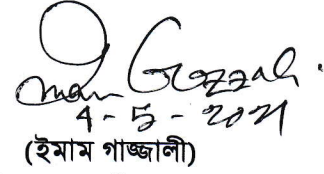 Imam Gazzali.
4-5-2021
(ইমাম গাজ্জালী)